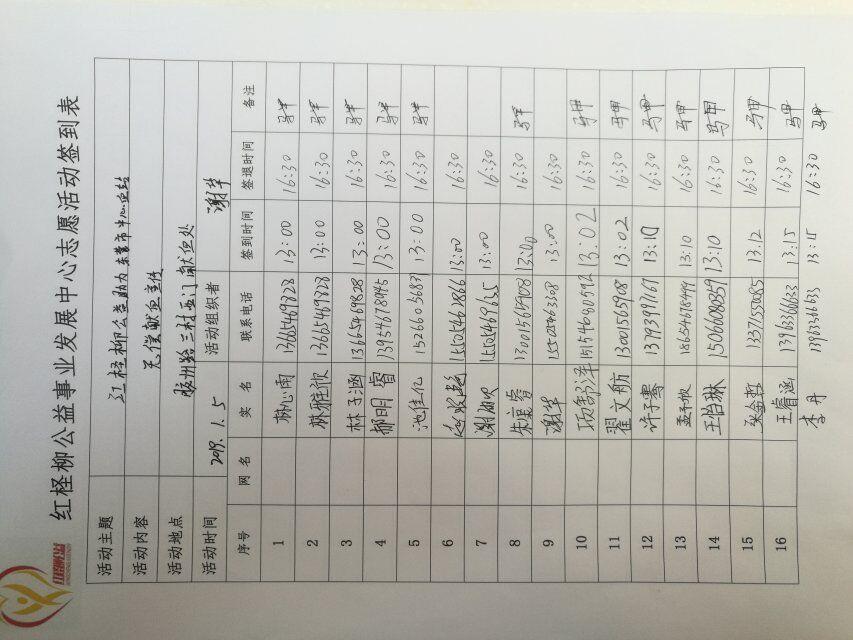 红柽柳公益事业发展中心志愿活动签到表
活动主题 红柽柳公益助力东营市中心血站
活动内容 无偿献血宣传
活动地点 胶州路三村西门献血处
活动时间 2019.1.5 活动组织者 谢华
序号 网名 实名 联系电话 签到时间 签退时间 备注
1 林心雨 13665469828 13:00 16:30 马甲
2 林雅欣 13665469828 13:00 16:30 马甲
3 林子涵 13665469828 13:00 16:30 马甲
4 郝明睿 13954678945 13:00 16:30 马甲
5 池佳忆 13:00 16:30 马甲
6 13:00 16:30
7 13:00 16:30
8 朱奕睿 13001565908 13:00 16:30 马甲
9 谢华 15505463308 13:00 16:30
10 13:02 16:30 马甲
11 翟文舫 13001565908 13:02 16:30 马甲
12 许子骞 13793997167 13:10 16:30 马甲
13 18654678499 13:10 16:30 马甲
14 王怡琳 15066080859 13:10 16:30 马甲
15 13:12 16:30 马甲
16 王睿涵 13963366633 13:15 16:30 马甲
李丹 13963366633 13:15 16:30 马甲